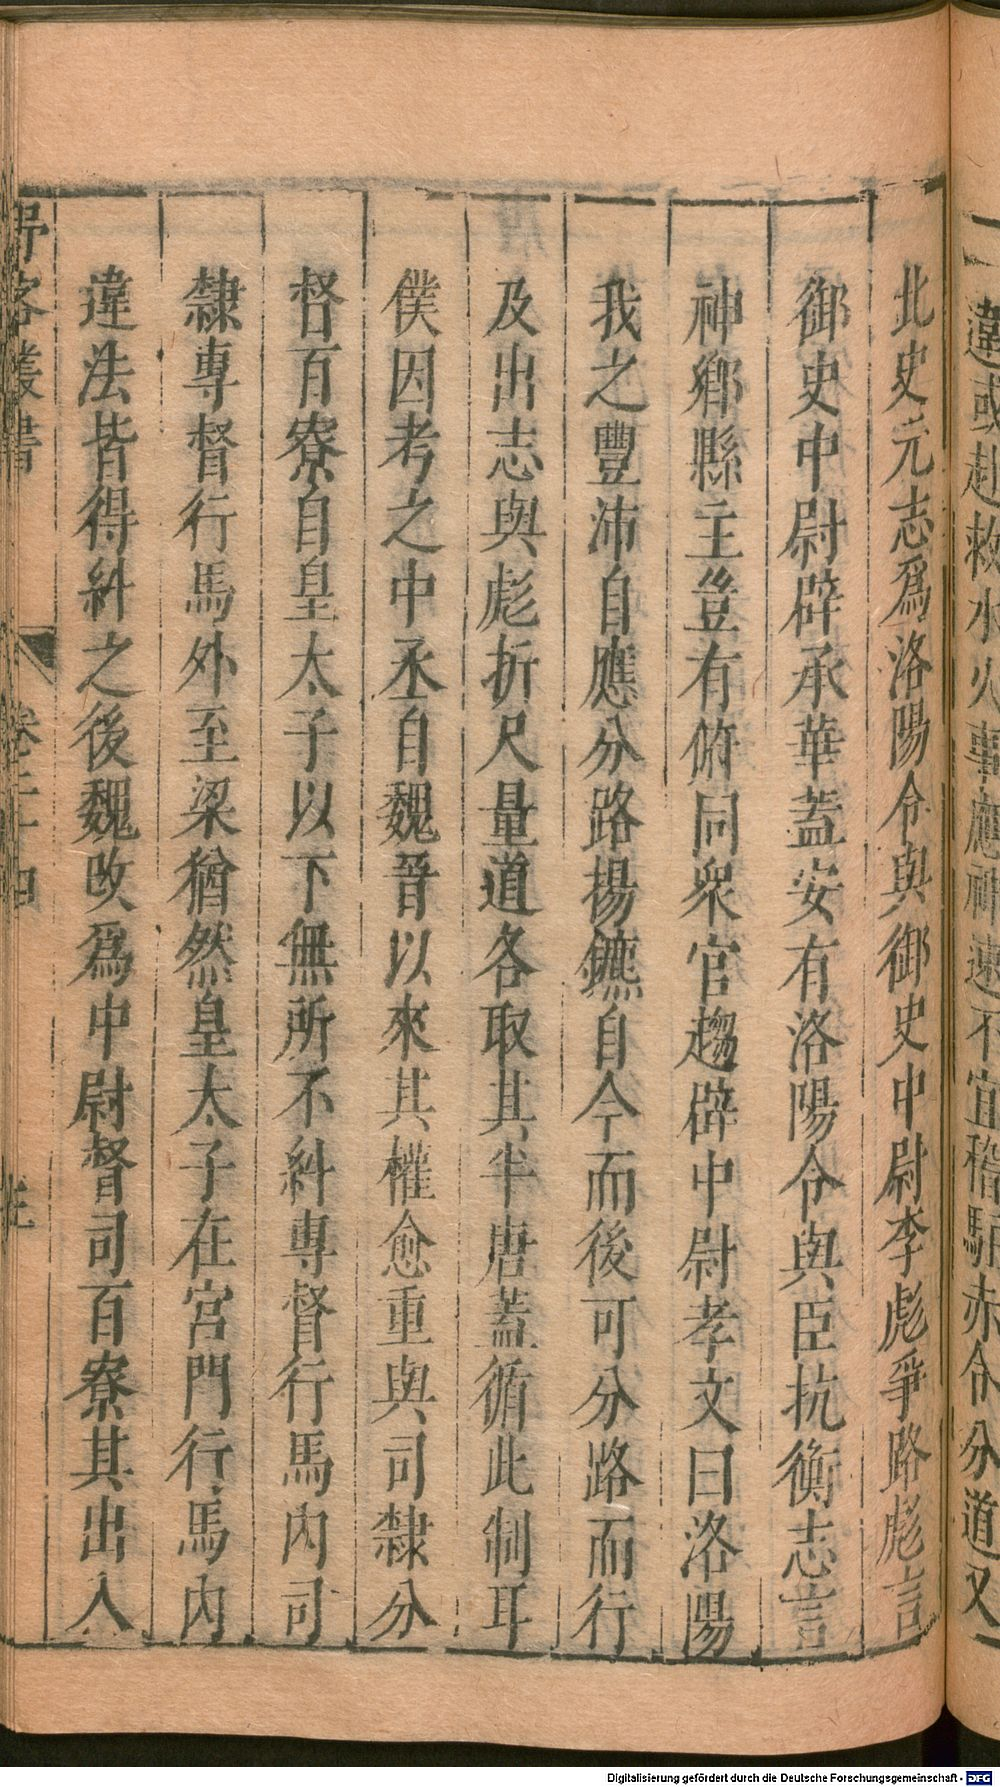 違或赴救水火事應神速不宜稽駐赤令分道又
北史元志爲洛陽令與御史中尉李彪爭路彪言
御史中尉辟承華蓋安有洛陽令與臣抗衡志言
神鄉縣主豈有俯同衆官趨辟中尉孝文曰洛陽
我之豐沛自應分路揚鑣自今而後可分路而行
及出志與彪折尺量道各取其半唐蓋循此制耳
僕因考之中丞自魏晉以來其權愈重與司隸分
督百寮自皇太子以下無所不糾專督行馬內司
隸專督行馬外至梁猶然皇太子在宮門行馬內
違法皆得糾之後魏改爲中尉督司百寮其出入
野客叢書
卷二十四
Digitalisierung gefördert durch die Deutsche Forschungsgemeinschaft - DFG